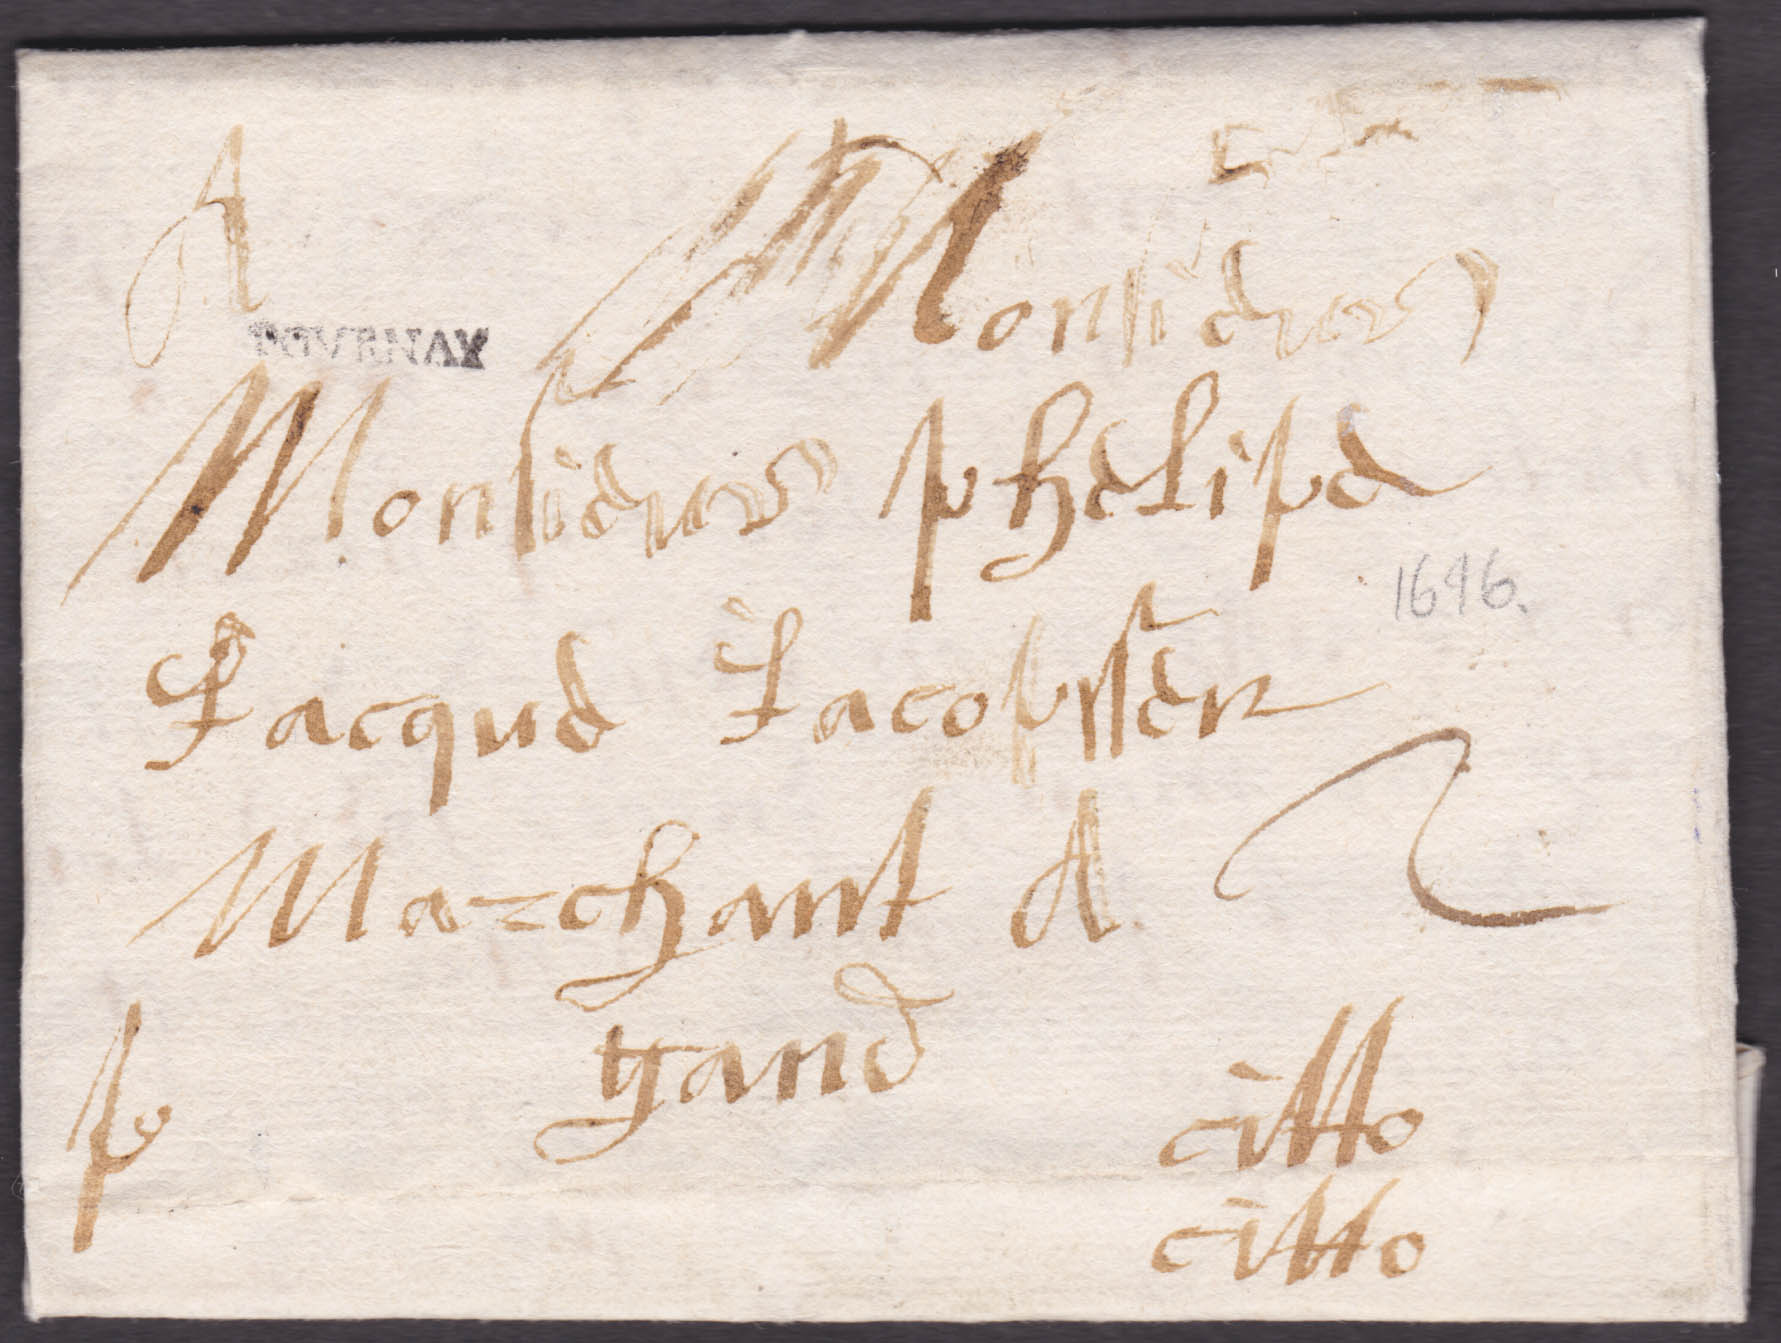 A Monsieur
TOVRNAY
Monsieur phelipe
1696.
Jacque Jacopssen
Marchant A
2
gand
p
citto
citto